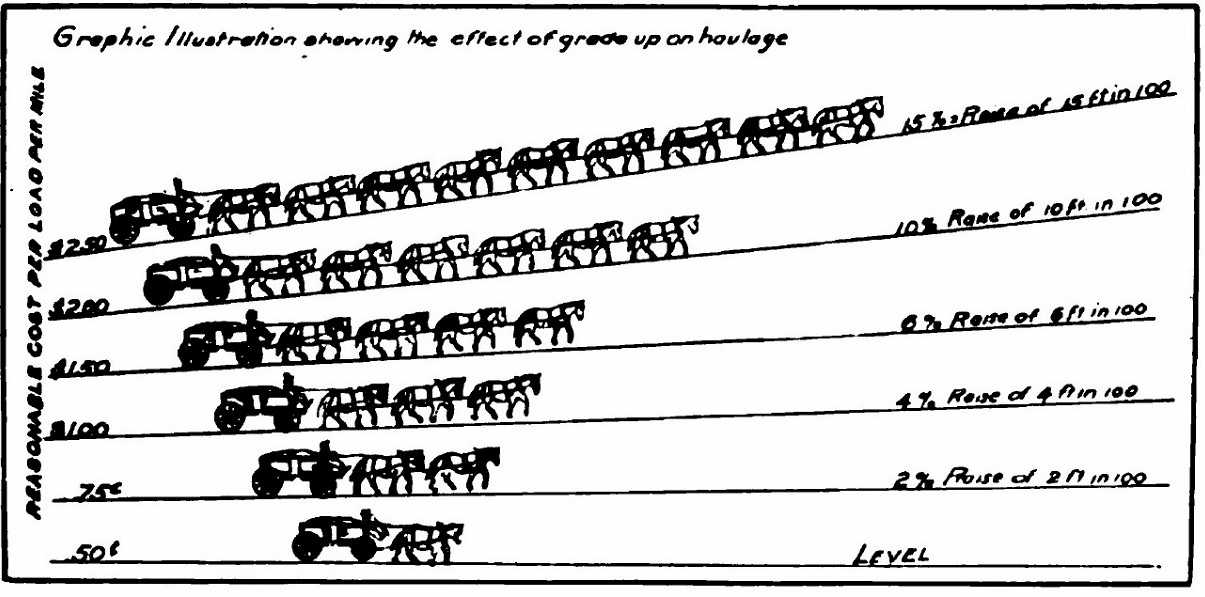 Graphic Illustration showing the effect of grade upon haulage
REASONABLE COST PER LOAD PER MILE
15% = Raise of 15 ft in 100
$2.50
10% Raise of 10 ft in 100
$2.00
6% Raise of 6 ft in 100
$1.50
4% Raise of 4 ft in 100
$1.00
2% Raise of 2 ft in 100
.75¢
.50¢
LEVEL